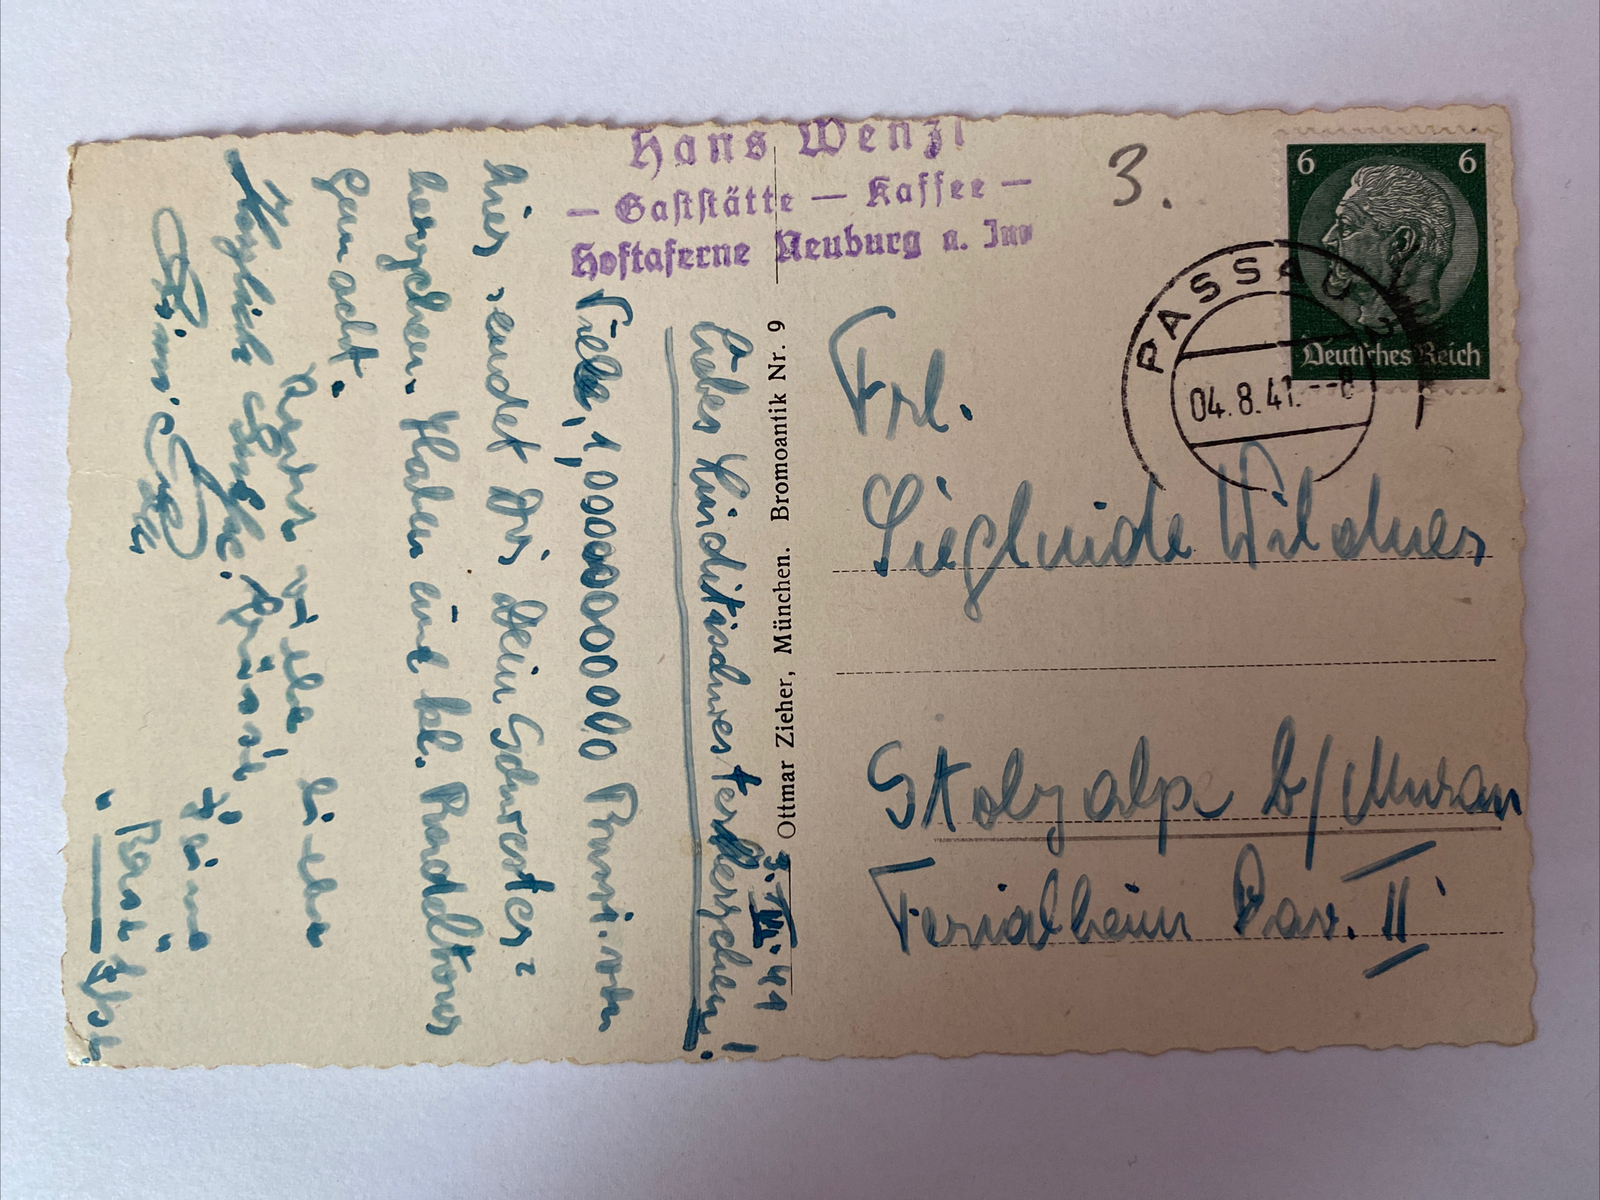 Hans Wenzl
— Gaststätte — Kaffee —
Hoftaferne Neuburg a. Inn
3.
6 6
Deutsches Reich
PASSAU 2
04.8.41.--8
3.VIII.41
Liebes Linditschwesterherzchen!
Viele, 1,0000000000000 Bussi von
hier sendet Dir Dein Schwester=
herzchen. Haben eine kl. Radltour
gemacht.
viele liebe
Herzlichst Grüße
Ottmar Zieher, München. Bromoantik Nr. 9
Frl.
Sieglinde Wildner
Stolzalpe b/Murau
Ferialheim Pav. II